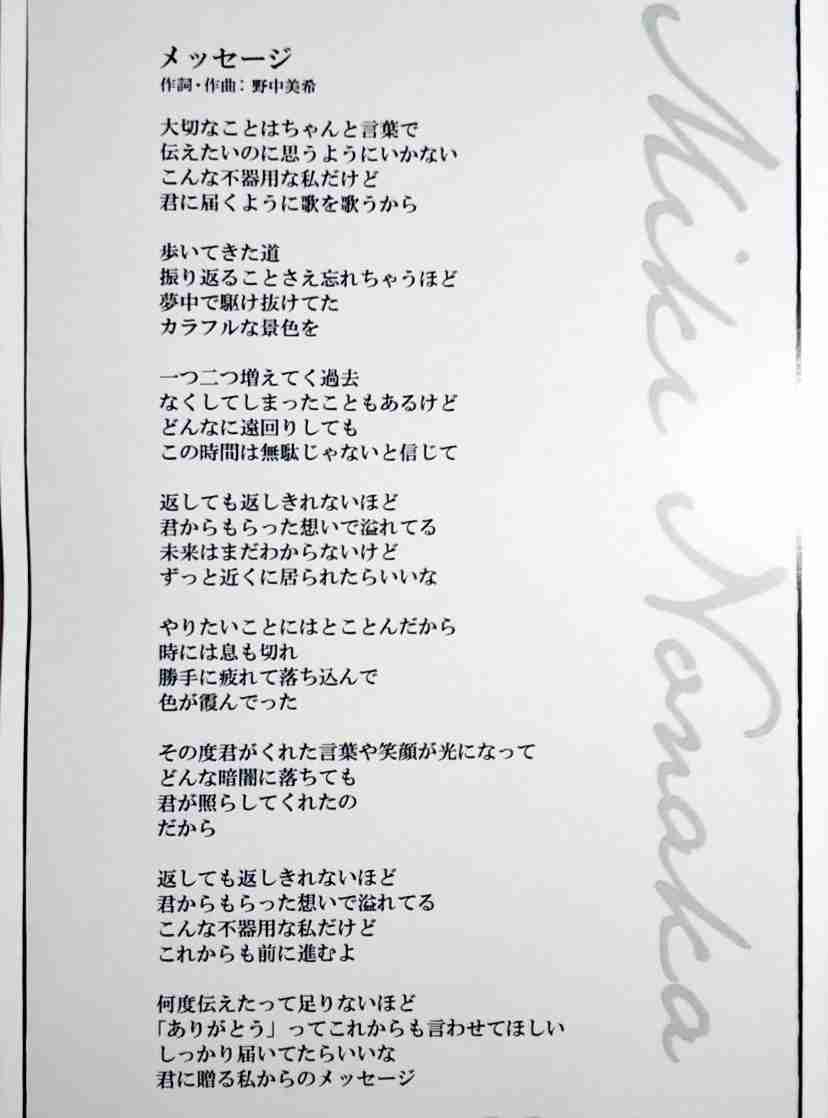 メッセージ
作詞・作曲：野中美希
大切なことはちゃんと言葉で
伝えたいのに思うようにいかない
こんな不器用な私だけど
君に届くように歌を歌うから
歩いてきた道
振り返ることさえ忘れちゃうほど
夢中で駆け抜けてた
カラフルな景色を
一つ二つ増えてく過去
なくしてしまったこともあるけど
どんなに遠回りしても
この時間は無駄じゃないと信じて
返しても返しきれないほど
君からもらった想いで溢れてる
未来はまだわからないけど
ずっと近くに居られたらいいな
やりたいことにはとことんだから
時には息も切れ
勝手に疲れて落ち込んで
色が霞んでった
その度君がくれた言葉や笑顔が光になって
どんな暗闇に落ちても
君が照らしてくれたの
だから
返しても返しきれないほど
君からもらった想いで溢れてる
こんな不器用な私だけど
これからも前に進むよ
何度伝えたって足りないほど
「ありがとう」ってこれからも言わせてほしい
しっかり届いてたらいいな
君に贈る私からのメッセージ
Miki Nonaka